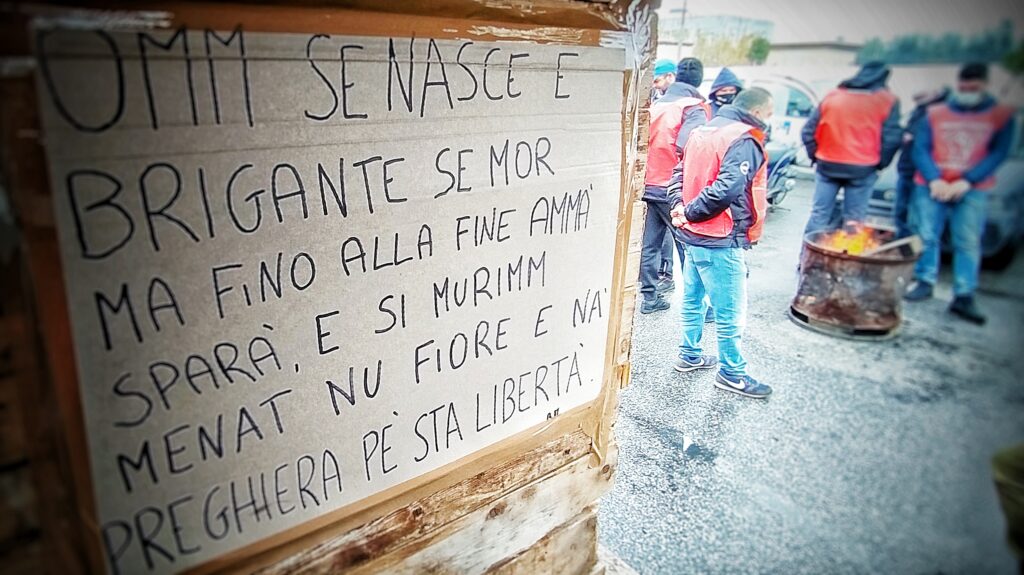 OMM SE NASCE E
BRIGANTE SE MOR
MA FINO ALLA FINE AMMA'
SPARÀ, E SI MURIMM
MENAT NU FIORE E NA'
PREGHIERA PÈ STA LIBERTÀ.